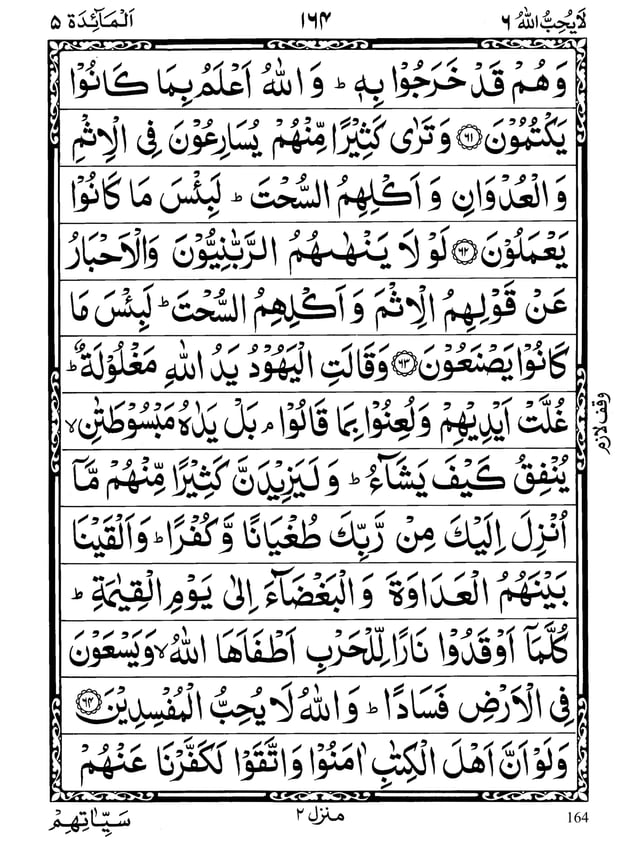 لَا يُحِبُّ اللّٰهُ ٦ ١٦٤ اَلْمَآئِدَة ٥
وَهُمْ قَدْ خَرَجُوْا بِهٖ ؕ وَ اللّٰهُ اَعْلَمُ بِمَا كَانُوْا
يَكْتُمُوْنَ ﴿٦١﴾ وَ تَرٰى كَثِيْرًا مِّنْهُمْ يُسَارِعُوْنَ فِى الْاِثْمِ
وَ الْعُدْوَانِ وَ اَكْلِهِمُ السُّحْتَ ؕ لَبِئْسَ مَا كَانُوْا
يَعْمَلُوْنَ ﴿٦٢﴾ لَوْ لَا يَنْهٰىهُمُ الرَّبّٰنِيُّوْنَ وَالْاَحْبَارُ
عَنْ قَوْلِهِمُ الْاِثْمَ وَ اَكْلِهِمُ السُّحْتَ ؕ لَبِئْسَ مَا
كَانُوْا يَصْنَعُوْنَ ﴿٦٣﴾ وَقَالَتِ الْيَهُوْدُ يَدُ اللّٰهِ مَغْلُوْلَةٌ ؕ
غُلَّتْ اَيْدِيْهِمْ وَ لُعِنُوْا بِمَا قَالُوْا ۘ بَلْ يَدٰهُ مَبْسُوْطَتٰنِ ۙ
وقف لازم
يُنْفِقُ كَيْفَ يَشَآءُ ؕ وَ لَيَزِيْدَنَّ كَثِيْرًا مِّنْهُمْ مَّاۤ
اُنْزِلَ اِلَيْكَ مِنْ رَّبِّكَ طُغْيَانًا وَّ كُفْرًا ؕ وَ اَلْقَيْنَا
بَيْنَهُمُ الْعَدَاوَةَ وَ الْبَغْضَآءَ اِلٰى يَوْمِ الْقِيٰمَةِ ؕ
كُلَّمَاۤ اَوْقَدُوْا نَارًا لِّلْحَرْبِ اَطْفَاَهَا اللّٰهُ ۙ وَيَسْعَوْنَ
فِى الْاَرْضِ فَسَادًا ؕ وَ اللّٰهُ لَا يُحِبُّ الْمُفْسِدِيْنَ ﴿٦٤﴾
وَلَوْ اَنَّ اَهْلَ الْكِتٰبِ اٰمَنُوْا وَاتَّقَوْا لَكَفَّرْنَا عَنْهُمْ
164 منزل ٢ سَيِّاٰتِهِمْ